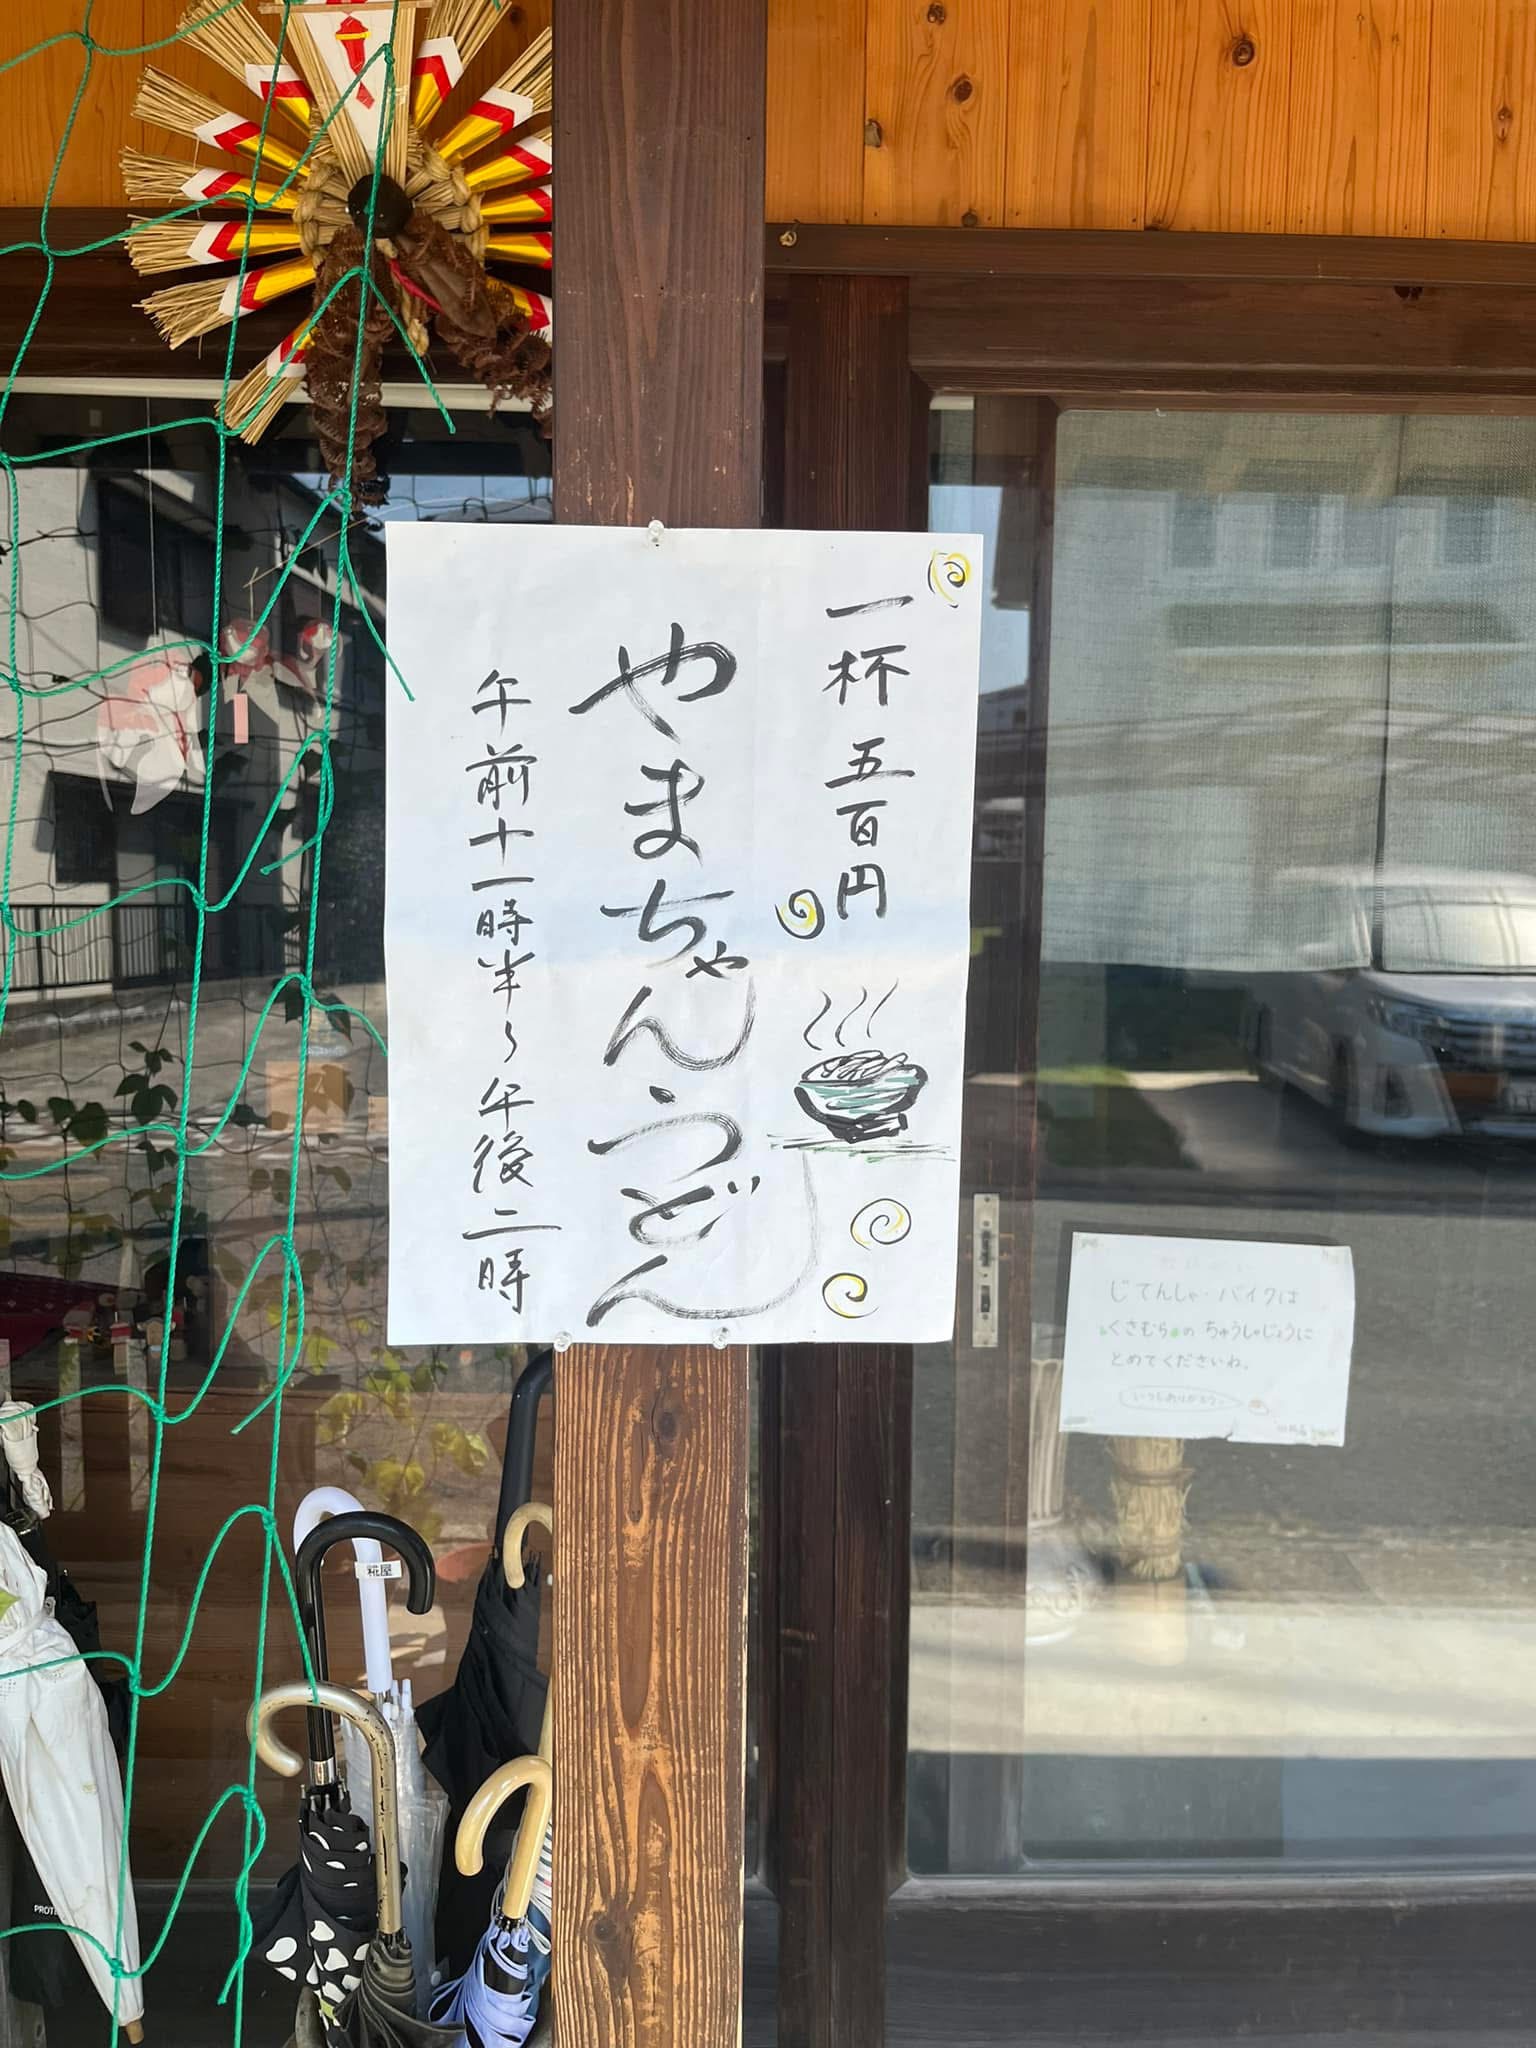 一杯 五百円
やまちゃんうどん
午前十一時半〜午後二時
じてんしゃ・バイクは
くさむらの ちゅうしゃじょうに
とめてくださいね。
いつもありがとう。
糀屋